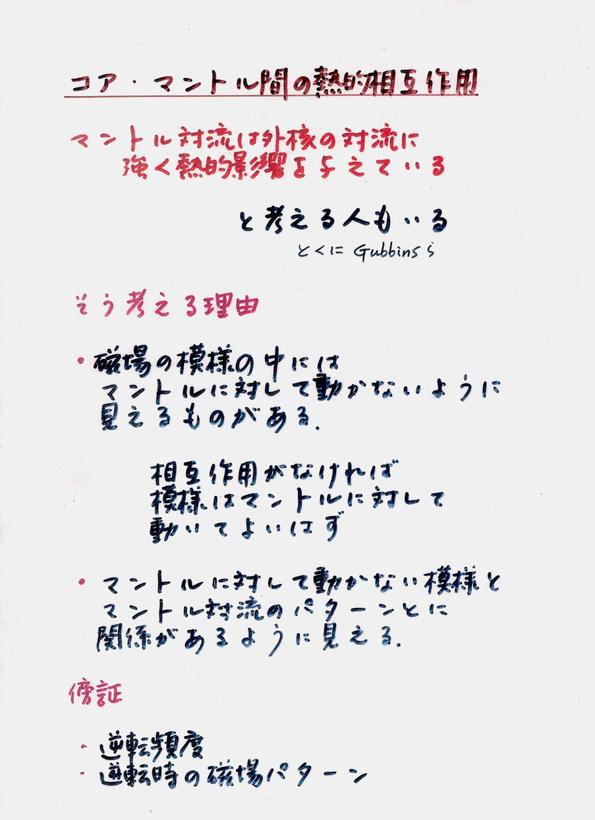 コア・マントル間の熱的相互作用
マントル対流は外核の対流に
強く熱的影響を与えている
と考える人もいる
とくに Gubbins ら
そう考える理由
・磁場の模様の中には
マントルに対して動かないように
見えるものがある.
相互作用がなければ
模様はマントルに対して
動いてよいはず
・マントルに対して動かない模様と
マントル対流のパターンとに
関係があるように見える.
傍証
・逆転頻度
・逆転時の磁場パターン